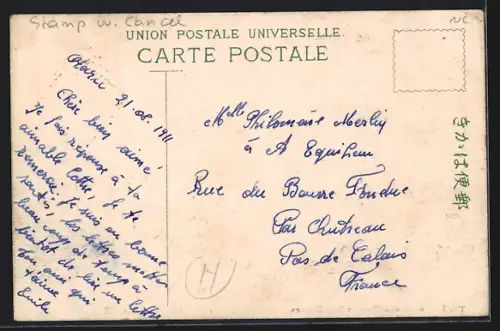 Stamp w. Cancel
NC
UNION POSTALE UNIVERSELLE.
CARTE POSTALE
Otaru 21 08. 1911
Chère bien aimé,
Je fais réponse à ta
aimable lettre, Je te
remercie Je suis en bonne
santée, les lettres mettent
beaucoup de temps à
de lire une lettre
ton ami qui
t'aime
Emile
Melle Philomène Merlin
à A Equihen
Rue du Bourre Fendue
Par Outreau
Pas de Calais
France
きかは便郵
H